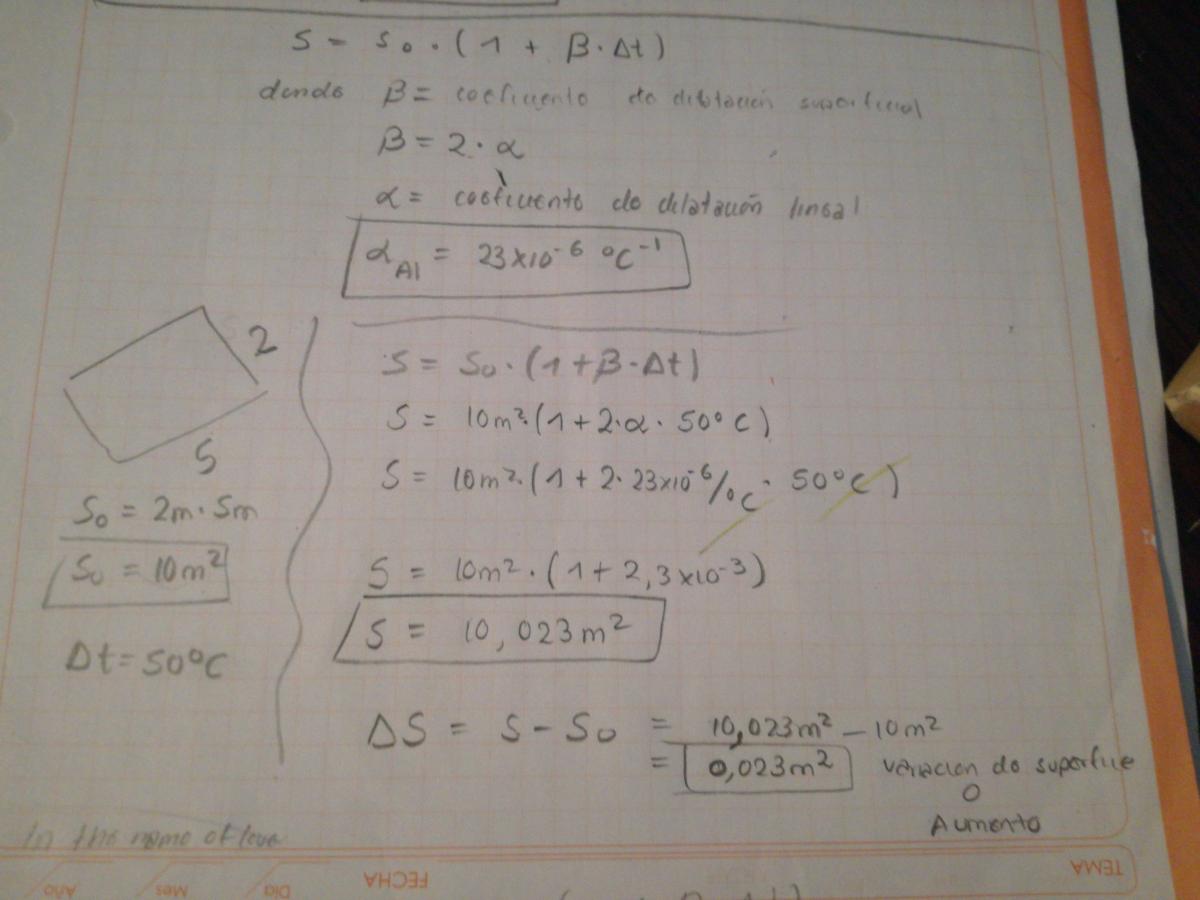 S = S₀ · (1 + β · Δt)
donde β = coeficiente de dilatación superficial
β = 2 · α
α = coeficiente de dilatación lineal
α Al = 23x10⁻⁶ °C⁻¹
2
5
S₀ = 2m · 5m
S₀ = 10m²
Δt = 50°C
S = S₀ · (1 + β · Δt)
S = 10m² · (1 + 2 · α · 50°C)
S = 10m² · (1 + 2 · 23x10⁻⁶/°C · 50°C)
S = 10m² · (1 + 2,3x10⁻³)
S = 10,023m²
ΔS = S - S₀ = 10,023m² - 10m²
= 0,023m² variación de superficie
O
Aumento
In the name of love
TEMA
FECHA
Día
Mes
Año